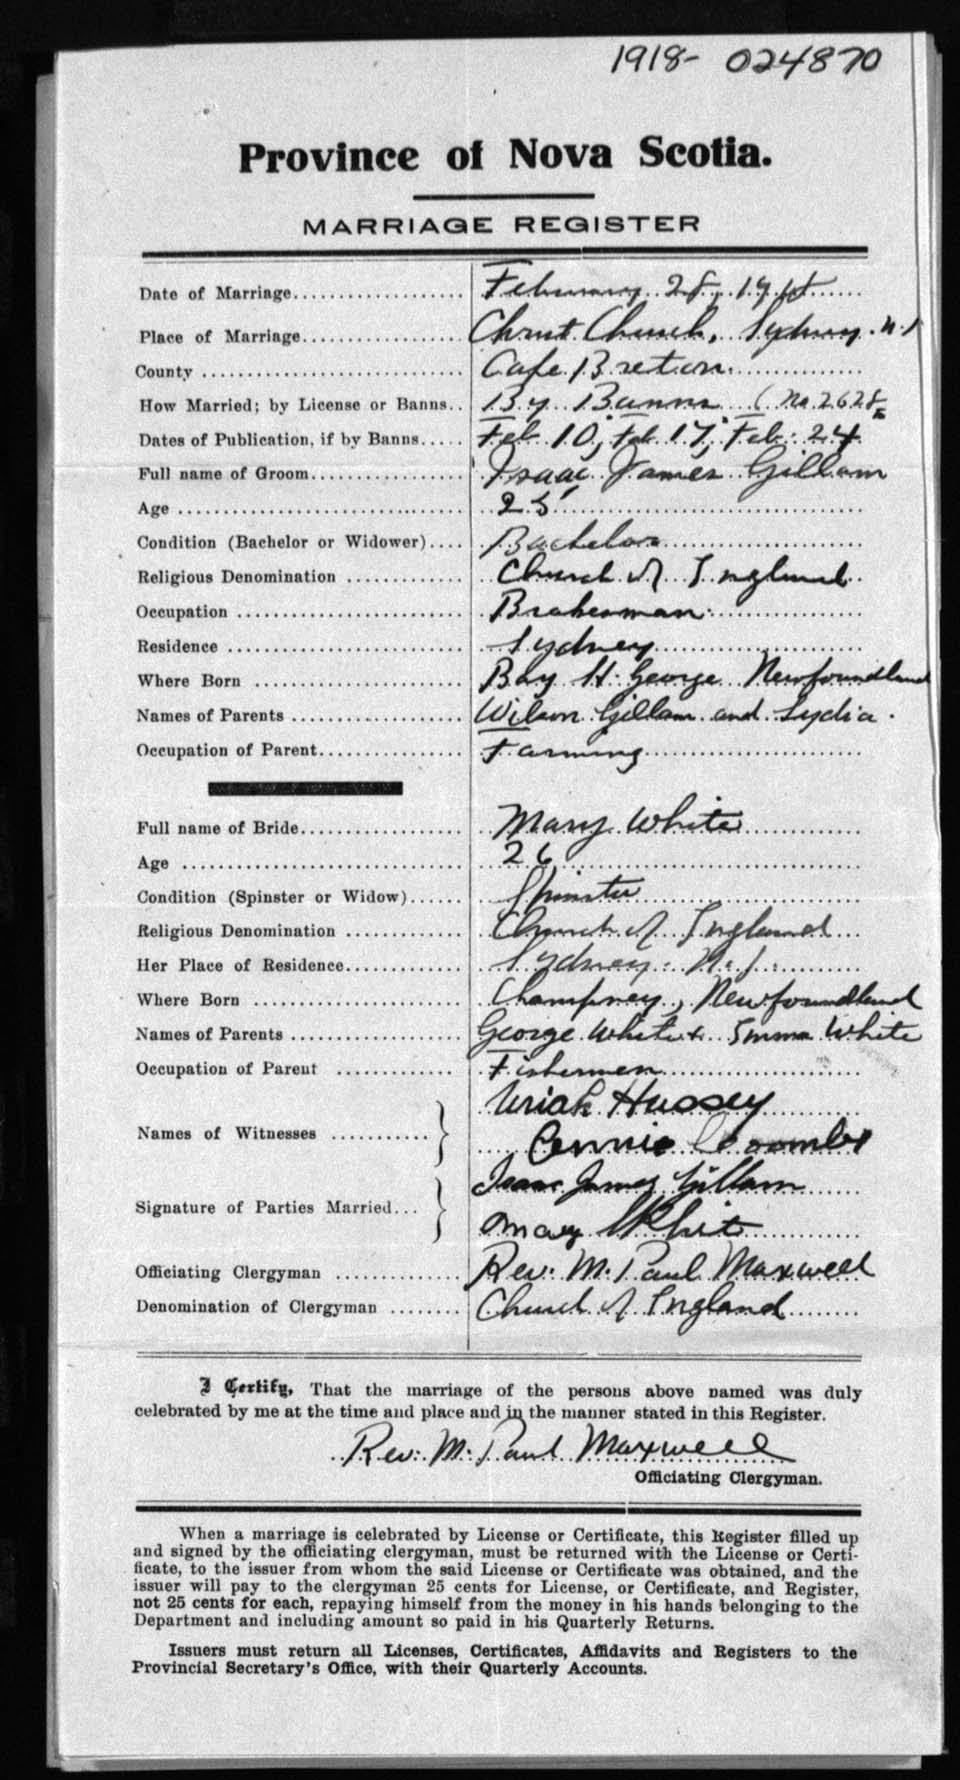 1918- 024870
Province of Nova Scotia.
MARRIAGE REGISTER
Date of Marriage................... February 28, 1918
Place of Marriage.................. Christ Church, Sydney. N.S
County ........................... Cape Breton.
How Married; by License or Banns.. By Banns (No. 2628
Dates of Publication, if by Banns..... Feb 10; Feb. 17; Feb. 24.
Full name of Groom................. Isaac James Gillam
Age ............................. 25
Condition (Bachelor or Widower).... Bachelor
Religious Denomination ............ Church of England
Occupation ....................... Brakesman
Residence ......................... Sydney
Where Born ...................... Bay St. George Newfoundland
Names of Parents .................. Wilson Gillam and Lydia.
Occupation of Parent............... Farming
Full name of Bride.................. Mary White
Age ............................. 26
Condition (Spinster or Widow)...... Spinster
Religious Denomination ............ Church of England
Her Place of Residence............. Sydney. N.S.
Where Born ...................... Champney, Newfoundland
Names of Parents .................. George White & Emma White
Occupation of Parent ............. Fishermen
Uriah Hussey
Names of Witnesses ...........
Annie Coombs
Isaac James Gillam
Signature of Parties Married...
Mary White
Officiating Clergyman ............. Rev. M. Paul Maxwell
Denomination of Clergyman ........ Church of England
I Certify, That the marriage of the persons above named was duly
celebrated by me at the time and place and in the manner stated in this Register.
Rev. M. Paul Maxwell
Officiating Clergyman.
When a marriage is celebrated by License or Certificate, this Register filled up
and signed by the officiating clergyman, must be returned with the License or Certi-
ficate, to the issuer from whom the said License or Certificate was obtained, and the
issuer will pay to the clergyman 25 cents for License, or Certificate, and Register,
not 25 cents for each, repaying himself from the money in his hands belonging to the
Department and including amount so paid in his Quarterly Returns.
Issuers must return all Licenses, Certificates, Affidavits and Registers to the
Provincial Secretary's Office, with their Quarterly Accounts.